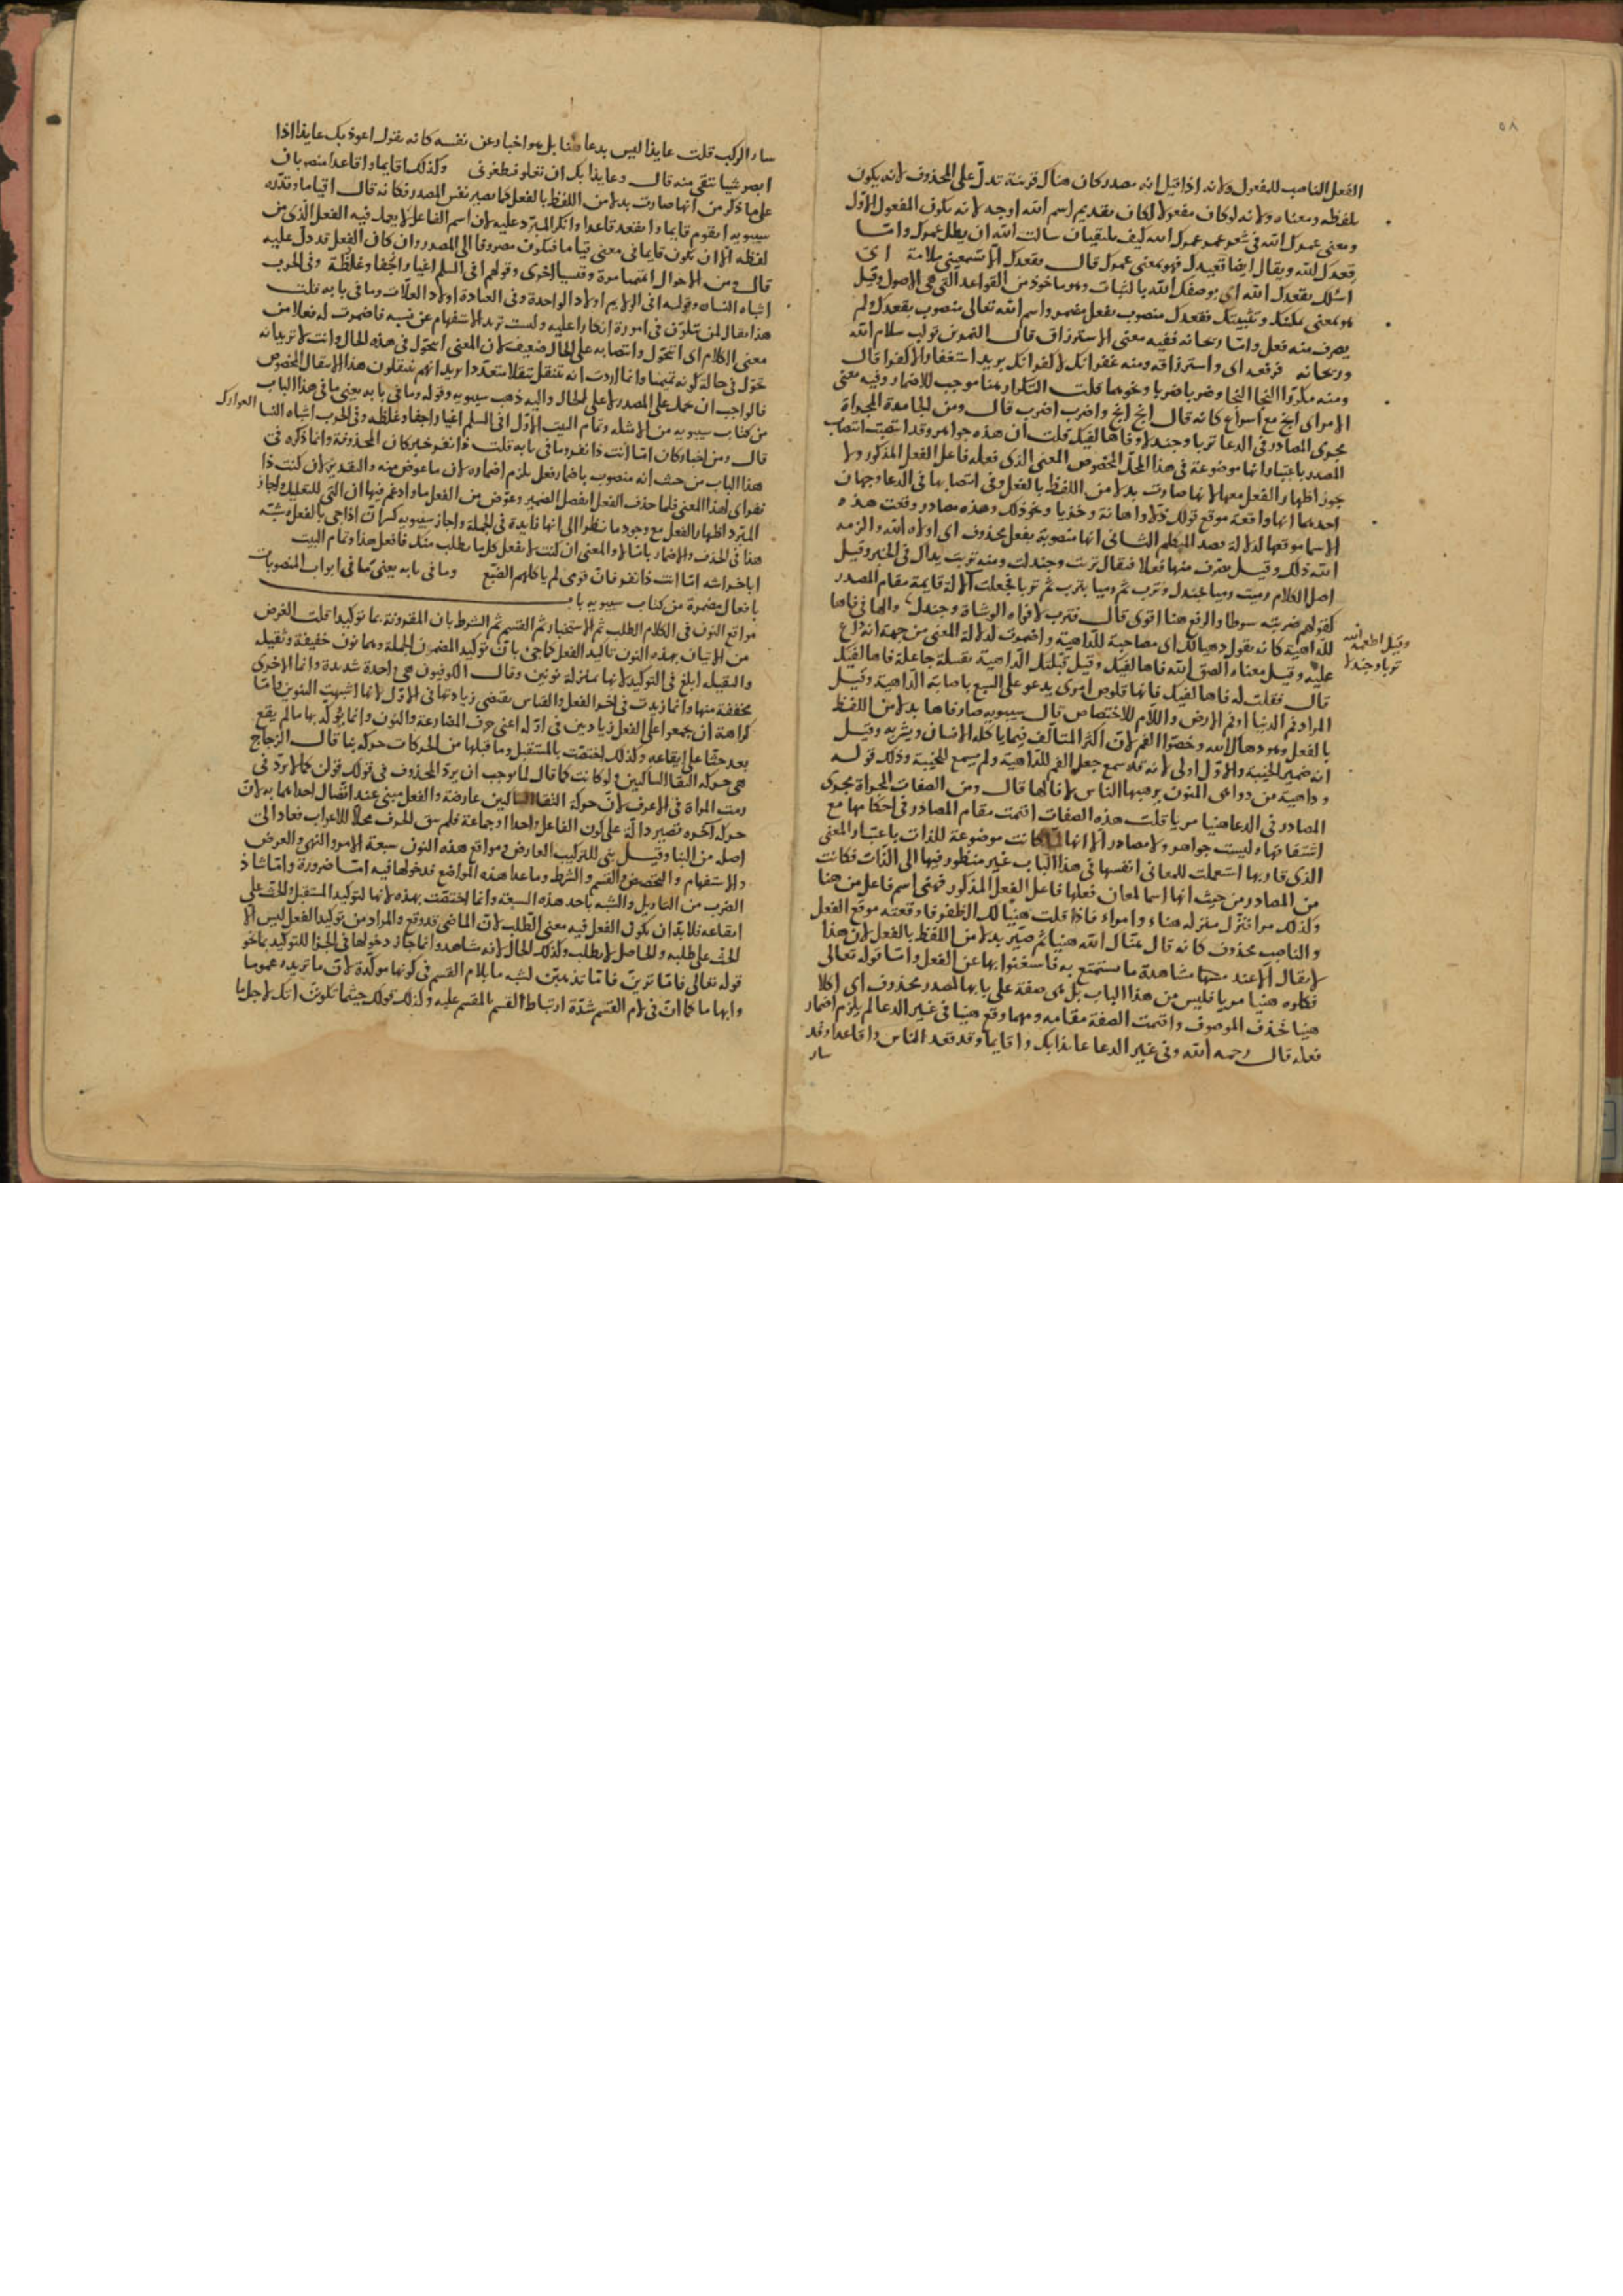 ٥٨
الفعل الناصب للمفعول ولانه اذا قيل انه مصدر كان هناك قرينة تدلّ على المحذوف لانه يكون
بلفظه ومعناه ولانه لو كان مفعولا لكان تقديم اسم الله اوجه لانه يكون المفعول الاوّل
ومعنى عمرك الله فى شعر عمر عمرك الله كيف يلتقيان سالت الله ان يطيل عمرك وامّا
قعدك الله ويقال ايضا قعيدك فهو بمعنى عمرك قال بقعدك الا تسمعينى ملامة اى
اسئلك بقعدك الله اى بوصفك الله بالثبات وهو ماخوذ من القواعد التى هى الاصول وقيل
هو بمعنى وتثبيتك فقعدك منصوب بفعل مضمر واسم الله تعالى منصوب بقعدك ولم
يصرف منه فعل وامّا ريحانه ففيه معنى الاسترزاق قال النمر بن تولب سلام الاله
وريحانه فرفعه اى واسترزاقه ومنه غفرانك لا كفرانك يريد استغفارا لا كفرا قال
ومنه مكرّرا النجا النجا وضربا ضربا ونحوهما قلت التكرار هنا موجب للاضمار وفيه معنى
الامر اى انج مع اسراع كانه قال انج انج واضرب اضرب قال ومن الجامدة المجراة
مجرى المصادر فى الدعا تربا وجندلا وفاها لفيك قلت ان هذه جواهر وقد انتصبت انتصاب
المصدر باعتبار انها موضوعة فى هذا المحلّ المخصوص المعنى الذى فعله فاعل الفعل المذكور ولا
يجوز اظهار الفعل معها لانها صارت بدلا من اللفظ بالفعل وفى انتصابها فى الدعا وجهان
احدهما انها واقعة موقع قولك ذلا واهانة وخزيا ونحو ذلك وهذه مصادر وقعت هذه
الاسما موقعها لدلالة قصد المتكلم الثانى انها منصوبة بفعل محذوف اى اولاه الله والزمه
الله ذلك وقيل يصرف منها فعلا فيقال تربت وجندلت ومنه تربت يداك فى الخبر وقيل
اصل الكلام رميت رميا بجندل وترب ثم رميا بترب ثم تربا فجعلت الالة قايمة مقام المصدر
كقولهم ضربته سوطا والرفع هنا اقوى قال فترب لافواه الوشاة وجندل والها فى فاها
للداهية كانه يقول دهيا لك اى مصاحبة للداهية واضمرت لدلالة المعنى من جهة انه دعا
وقيل اطعمه الله
تربا وجندلا
عليه وقيل معناه الصق الله فاها لفيك وقيل قبّلتك الداهية بقبلة جاعلة فاها لفيك
قال فقلت له فاها لفيك فانها قلوص امرى يدعو على السبع باصابة الداهية وقيل
المراد فم الدنيا او فم الارض واللام للاختصاص قال سيبويه صار فاها بدلا من اللفظ
بالفعل وهو دهاك الله وخصّوا الفم لان اكثر المتالف فيما ياكله الانسان ويشربه وقيل
انه ضمير الخيبة والاوّل اولى لانه قد سمع جعل الفم للداهية ولم يسمع للخيبة وذلك قوله
وداهية من دواهى المنون يرهبها الناس لا فا لها قال ومن الصفات المجراة مجرى
المصادر فى الدعا هنيا مريا قلت هذه الصفات اقيمت مقام المصادر فى احكامها مع
اشتقاقها وليست جواهر ولا مصادر الا انها لمّا كانت موضوعة للذات باعتبار المعنى
الذى قام بها استعملت للمعانى انفسها فى هذا الباب غير منظور فيها الى الذات فكانت
من المصادر من حيث انها اسما لمعان فعلها فاعل الفعل المذكور فهنى اسم فاعل من هنا
وكذلك مرا فتنزّل منزله هناء وامراء فاذا قلت هنيا لك الظفر فاوقعته موقع الفعل
والناصب محذوف كانه قال هنا لك الله هنيا ثم صيّر بدلا من اللفظ بالفعل لان هذا
لا يقال الا عند مشاهدة ما يستمتع به فاستغنوا بها عن الفعل وامّا قوله تعالى
فكلوه هنيا مريا فليس من هذا الباب بل هى صفة على بابها لمصدر محذوف اى اكلا
هنيا فحذف الموصوف واقيمت الصفة مقامه ومهما وقع هنيا فى غير الدعا لم يلزم اضمار
فعله قال رحمه الله وفى غير الدعا عايذا بك واقايما وقد قعد الناس واقاعدا وقد
سار
سار الركب قلت عايذا ليس بدعا هنا بل هو اخبار عن نفسه كانه يقول اعوذ بك عايذا اذا
ابصر شيا تتقى منه قال وعايذا بك ان تغلو فيطغونى وكذلك اقايما واقاعدا منصوبان
على ما ذكر من انها صارت بدلا من اللفظ بالفعل كما يصير نفس المصدر فكانه قال اقياما وقدّره
سيبويه اتقوم قايما واتقعد قاعدا وانكر المبرّد عليه لان اسم الفاعل لا يعمل فيه الفعل الذى من
لفظه الا ان يكون قايما فى معنى قياما فيكون مصروفا الى المصدر وان كان الفعل قد دلّ عليه
قال ومن الاحوال اتميميا مرة وقيسيا اخرى وقولهم افى السلم اعيارا جفا وغلظة وفى الحرب
اشباه النسا وقوله افى الولايم اولادا لواحدة وفى العيادة اولادا لعلّات وما فى بابه قلت
هذا يقال لمن يتلوّن فى اموره انكارا عليه ولست تريد الاستفهام عن نسبه فاضمرت له فعلا من
معنى الكلام اى اتتحوّل وانتصابه على الحال ضعيف لان المعنى اتتحوّل فى هذه الحال وانت لا تريد انه
تحوّل فى حالة كونه تميميا وانما اردت انه تنتقل تنقلا متعدّدا ويدا انهم ينتقلون هذا الانتقال المخصوص
فالواجب ان يحمل على المصدر لا على الحال واليه ذهب سيبويه وقوله وما فى بابه يعنى ما فى هذا الباب
من كتاب سيبويه من الامثله وتمام البيت الاوّل افى السلم اعيارا جفا وغلظه وفى الحرب اشباه النسا العوارك
قال ومن اخبار كان امّا انت ذا نفر وما فى بابه قلت ذا نفر خبر كان المحذوفة وانما ذكره فى
هذا الباب من حيث انه منصوب باضمار فعل يلزم اضماره لان ما عوض منه والتقدير لان كنت ذا
نفر اى لهذا المعنى فلما حذف الفعل انفصل الضمير وعوّض من الفعل ما وادغم فيها ان التى للتعليل واجاز
المبرّد اظهار الفعل مع وجود ما نظرا الى انها زايدة فى الجملة واجاز سيبويه كسر ان اذا جى بالفعل وشبّه
هذا فى الحذف والاضمار بامّا لا والمعنى ان كنت لا تفعل كل ما يطلب منك فافعل هذا وتمام البيت
ابا خراشه امّا انت ذا نفر فان قومى لم ياكلهم الضبع وما فى بابه يعنى ما فى ابواب المنصوبات
بافعال مضمرة من كتاب سيبويه باب
مواقع النون فى الكلام الطلب ثم الاستخبار ثم القسم ثم الشرط بان المقرونة بما توكيدا قلت الغرض
من الاتيان بهذه النون تاكيد الفعل كما جى بان توكيد المضمون الجملة وهما نون خفيفة وثقيله
والثقيله ابلغ فى التوكيد لانها بمنزلة نونين وقال الكوفيون هى واحدة شديدة وانما الاخرى
مخففة منها وانما زيدت فى اخر الفعل والقياس يقتضى زيادتها فى الاوّل لانها اشبهت التنوين وامّا
كراهة ان يجمعوا على الفعل زيادتين فى اوّله اعنى حرف المضارعة والنون وانما يؤكّد بها ما لم يقع
بعد حثّا على ايقاعه وكذلك اختصّت بالمستقبل وما قبلها من الحركات حركة بنا قال الزجاج
هى حركة التقا الساكنين ولو كانت كما قال لما وجب ان يردّ المحذوف فى قولك قولن كما لا يردّ فى
رمت المراة فى الاعرف لان حركة التقا الساكنين عارضة والفعل مبنى عند اتّصال احداهما به لان
حركة آخره تصير دالة على كون الفاعل واحدا او جماعة فلم يبق الحرف محلّا للاعراب فعاد الى
اصله من البنا وقيل بنى للتركيب العارض ومواقع هذه النون سبعة الامر والنهى والعرض
والاستفهام والتحضيض والقسم والشرط وما عدا هذه المواضع فدخولها فيه امّا ضرورة وامّا شاذ
الضرب من التاويل والشبه باحد هذه السبعة وانما اختصّت بهذه لانها لتوكيد المستقبل والحثّ على
ايقاعه فلا بدّ ان يكون الفعل فيه معنى الطلب لان الماضى قد وقع والمراد من توكيد الفعل ليس الا
الحث على طلبه والحاصل لا يطلب وكذلك الحال لانه شاهد وانما جاز دخولها فى الجزا للتوكيد بما نحو
قوله تعالى فامّا ترينّ فامّا نذهبنّ لشبه ما بلام القسم فى كونها موكّدة لان ما تزيده عموما
وابهاما كما ان فى لام القسم شدّة ارتباط القسم بالمقسم عليه وكذلك قولك حيثما تكوننّ اتك لاجل ما